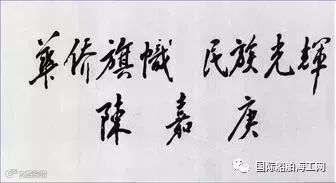 華侨旗幟 民族光輝
陳嘉庚
国际船舶海工网